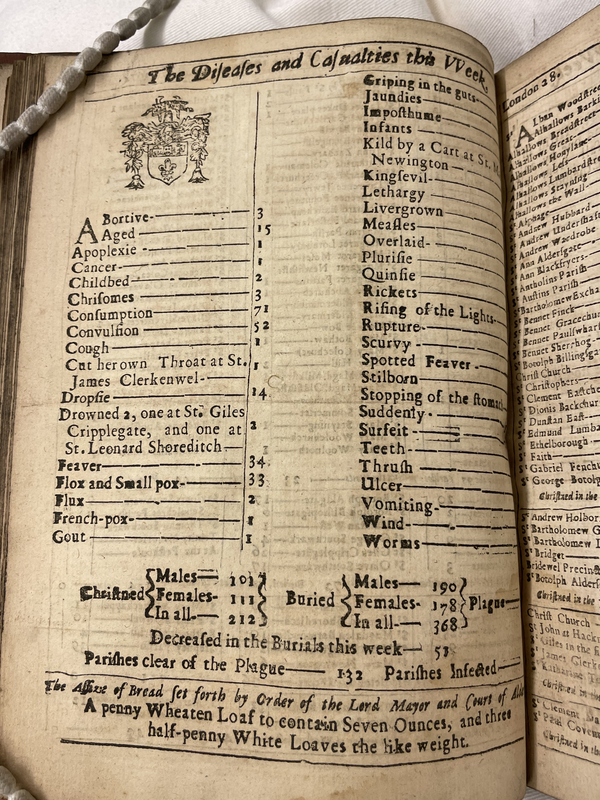 The Diseases and Casualties this Week.
ABortive- 3
Aged 15
Apoplexie - 1
Cancer- 1
Childbed 2
Chrisomes 3
Consumption 71
Convulsion 52
Cough 1
Cut her own Throat at St.
James Clerkenwel- 1
Dropsie 14
Drowned 2, one at St. Giles
Cripplegate, and one at
St. Leonard Shoreditch 2
Feaver 34
Flox and Small pox- 33
Flux 2
French-pox- 1
Gout 1
Griping in the guts-
Jaundies
Imposthume
Infants
Kild by a Cart at St.
Newington
Kingsevil-
Lethargy
Livergrown
Measles
Overlaid-
Plurisie
Quinsie
Rickets
Rising of the Lights-
Rupture-
Scurvy -
Spotted Feaver -
Stilborn
Stopping of the stomach
Suddenly -
Surfeit
Teeth-
Thrush
Ulcer
Vomiting-
Wind-
Worms
Christned { Males— 101 Females- 111 In all— 212 }
Buried { Males— 190 Females- 178 In all— 368 } Plague
Decreased in the Burials this week— 51
Parishes clear of the Plague— 132 Parishes Infected—
The Assize of Bread set forth by Order of the Lord Mayor and Court of
A penny Wheaten Loaf to contain Seven Ounces, and three
half-penny White Loaves the like weight.
London 28
St Alban Woodstree
Alhallows Barki
Alhallows Breadstreet
Alhallows Great
Alhallows Honylane
Alhallows Less
Alhallows Lumbardstre
Alhallows Stayning
Alhallows the Wall
St Alphage
St Andrew Hubbard
St Andrew Undershaft
St Andrew Wardrobe
St Ann Aldersgate
St Ann Blackfryers
St Antholins Parish
St Austins Parish
St Bartholomew Excha
St Bennet Finck
St Bennet Gracechu
St Bennet Paulswharf
St Bennet Sherehog
St Botolph Billingsga
Christ Church
St Christophers
St Clement Eastche
St Dionis Backchur
St Dunstan East
St Edmund Lumba
St Ethelborough
St Faith
St Gabriel Fenchu
St George Botolp
Christned in the
St Andrew Holbor
St Bartholomew G
St Bartholomew L
St Bridget
Bridewel Precinct
St Botolph Aldersf
Christned in the
Christ Church
St John at Hackn
St Giles in the fi
St James Clerke
St Katharine T
Christned in the
St Clement Da
St Paul Covent
Christned in th